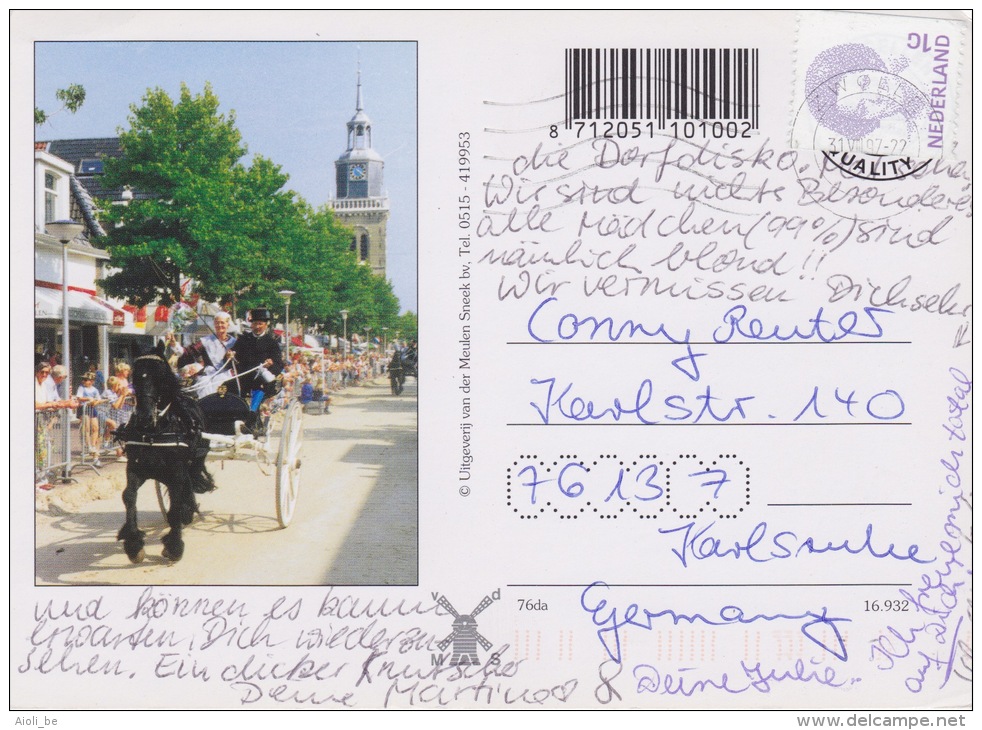 NEDERLAND
1G
31 VII 97-22
QUALITY
8 712051 101002
© Uitgeverij van der Meulen Sneek bv, Tel. 0515 - 419953
die Dorfdisko.
Wir sind nichts Besonderes
alle Mädchen (99%) sind
nämlich blond!!
Wir vermissen Dich sehr
Conny Reuter
Karlstr. 140
76137
Karlsruhe
Germany
76da
16.932
v d
M S
und können es kaum
erwarten, Dich wiederzu-
sehen. Ein dicker Knutscher
Deine Martina & Deine Julie.
Ich freue mich total
auf Dich!
Aioli_be
www.delcampe.net